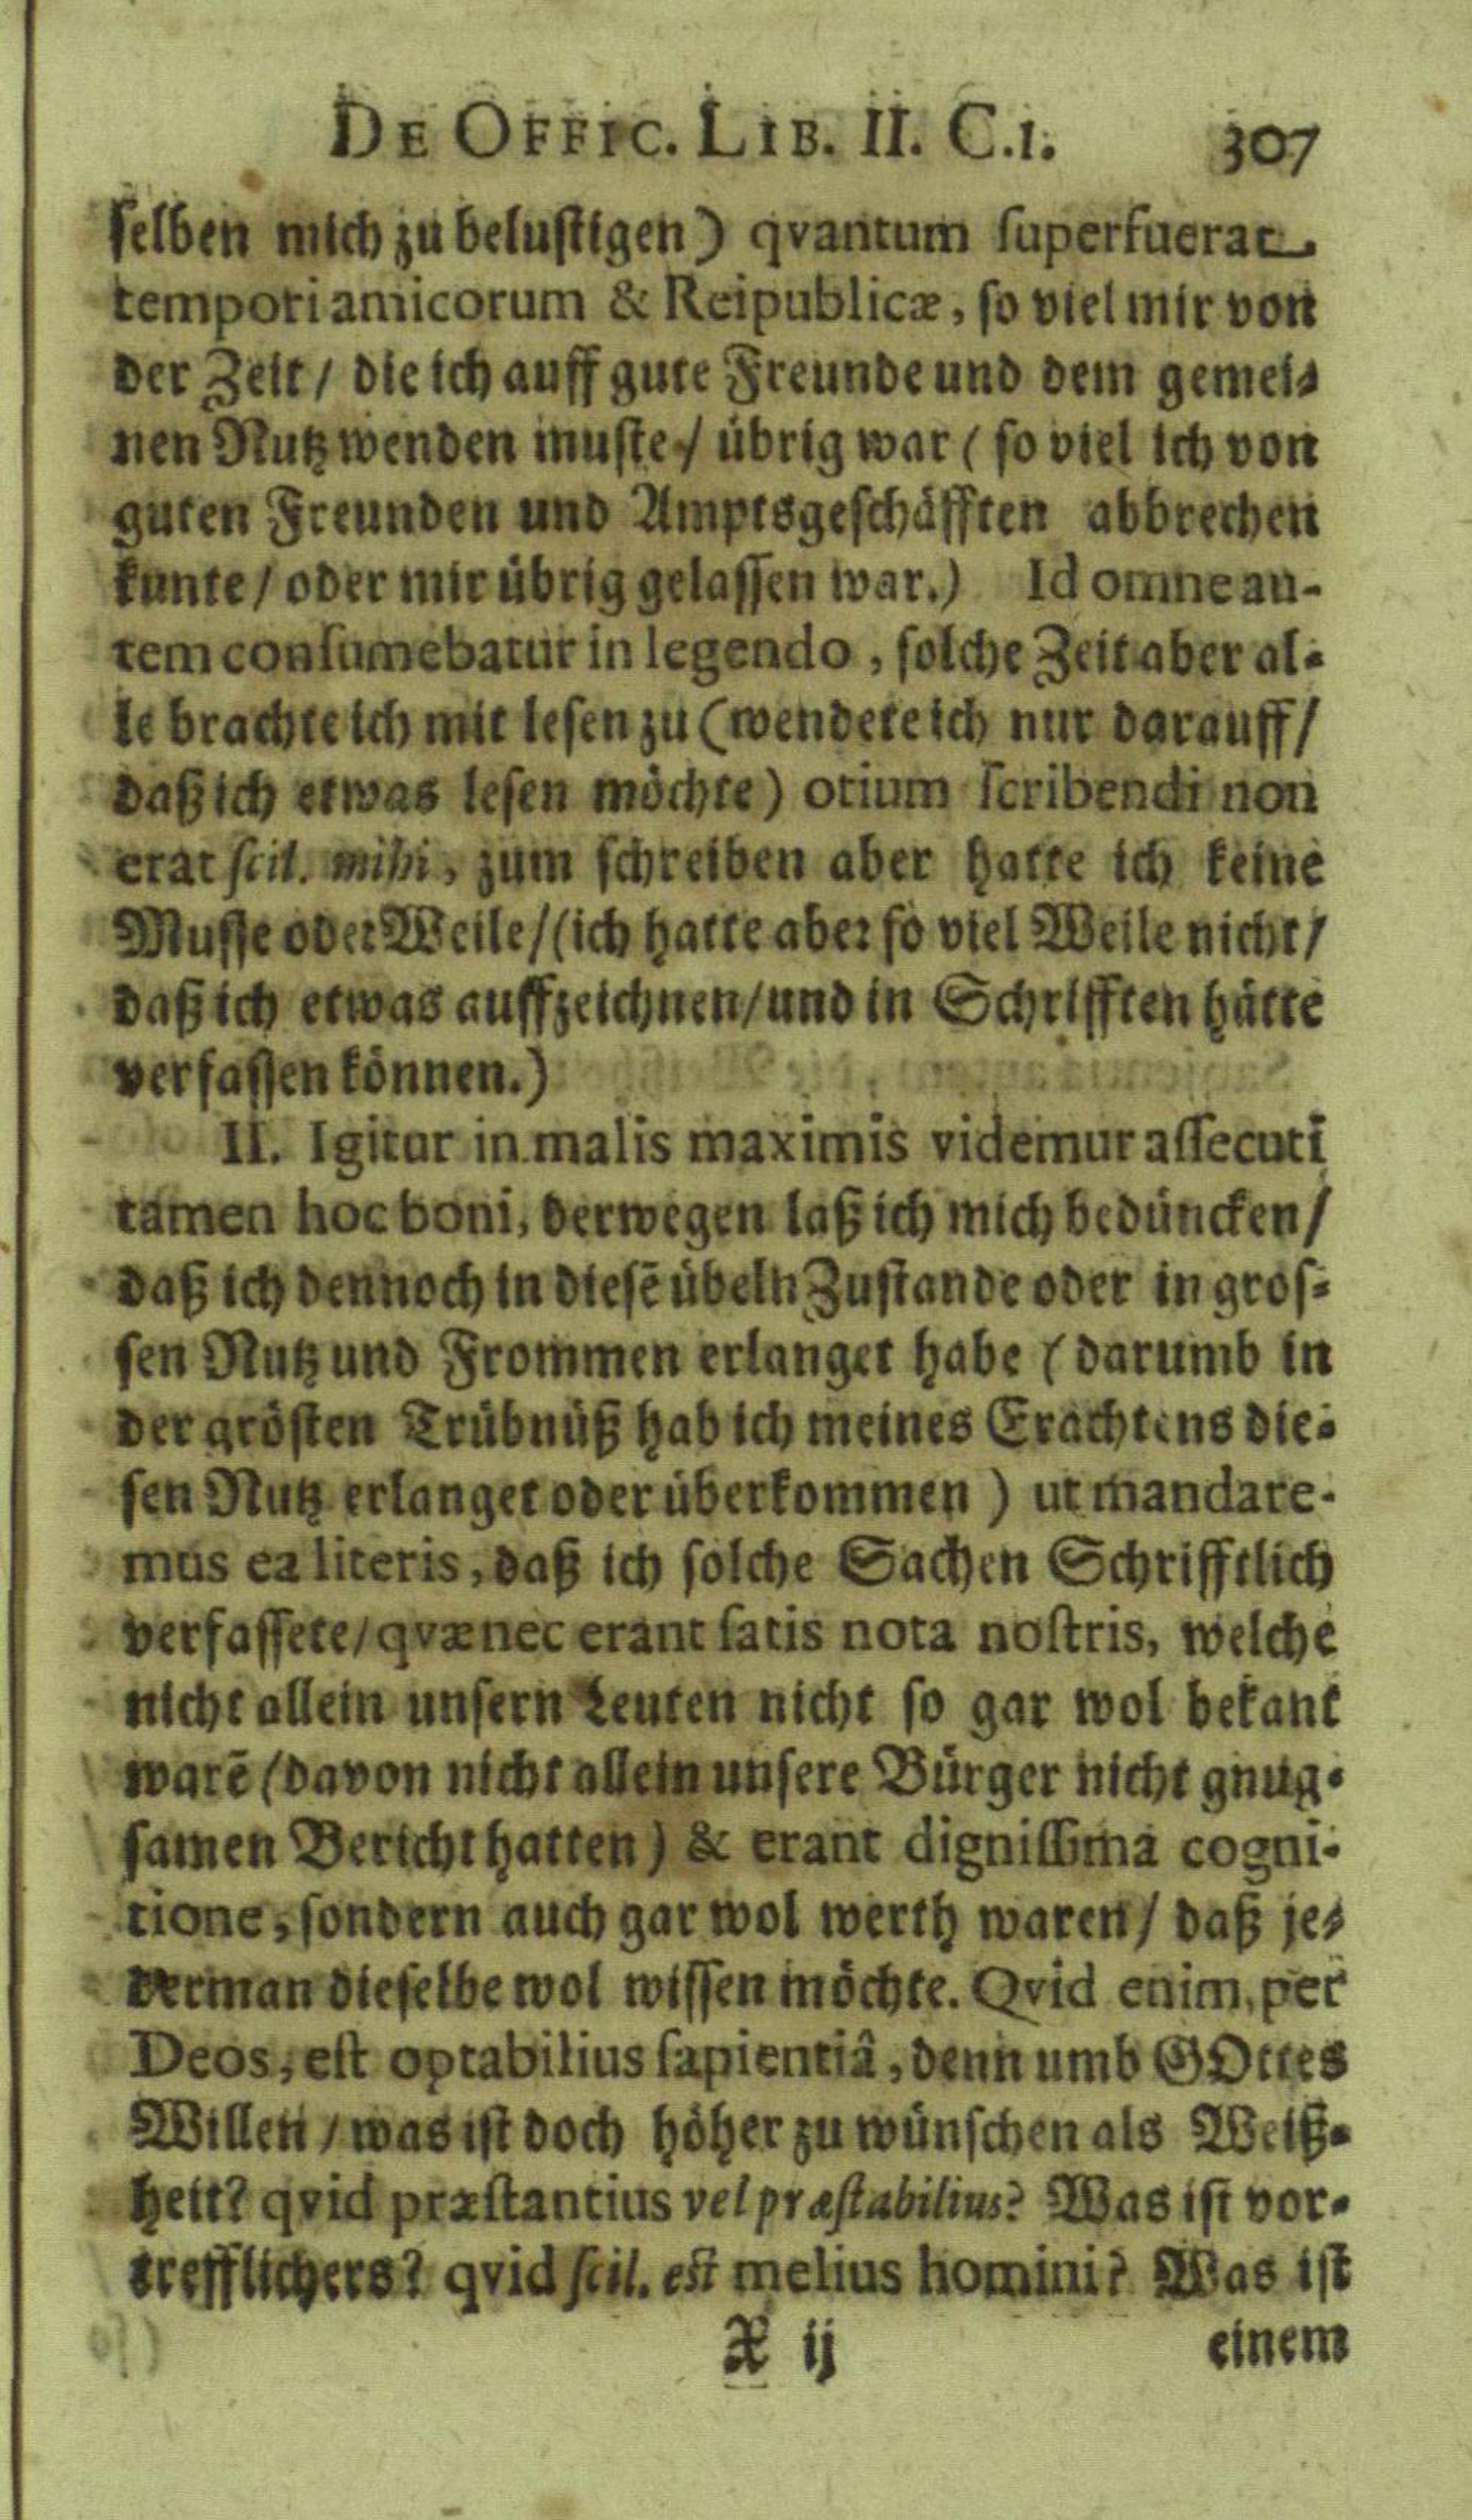 DE OFFIC. LIB. II. C.1. 307
selben mich zu belustigen) qvantum superfuerat
tempori amicorum & Reipublicæ, so viel mir von
der Zeit / die ich auff gute Freunde und dem gemei-
nen Nutz wenden muste / übrig war ( so viel ich von
guten Freunden und Amptsgeschäfften abbrechen
kunte / oder mir übrig gelassen war.) Id omne au-
tem consumebatur in legendo, solche Zeit aber al-
le brachte ich mit lesen zu (wendete ich nur darauff /
daß ich etwas lesen möchte) otium scribendi non
erat scil. mihi, zum schreiben aber hatte ich keine
Musse oder Weile / (ich hatte aber so viel Weile nicht /
daß ich etwas auffzeichnen / und in Schrifften hätte
verfassen können.)
II. Igitur in malis maximis videmur assecuti
tamen hoc boni, derwegen laß ich mich bedüncken /
daß ich dennoch in diesē übeln Zustande oder in gros-
sen Nutz und Frommen erlanget habe ( darumb in
der grösten Trübnüß hab ich meines Erachtens die-
sen Nutz erlanget oder überkommen ) ut mandare-
mus ea literis, daß ich solche Sachen Schrifftlich
verfassete / qvæ nec erant satis nota nostris, welche
nicht allein unsern Leuten nicht so gar wol bekant
warē (davon nicht allein unsere Bürger nicht gnug-
samen Bericht hatten) & erant dignissima cogni-
tione, sondern auch gar wol werth waren / daß je-
derman dieselbe wol wissen möchte. Qvid enim, per
Deos, est optabilius sapientiâ, denn umb GOttes
Willen / was ist doch höher zu wünschen als Weiß-
heit? qvid præstantius vel præstabilius? Was ist vor-
trefflichers? qvid scil. est melius homini? Was ist
X ij einem